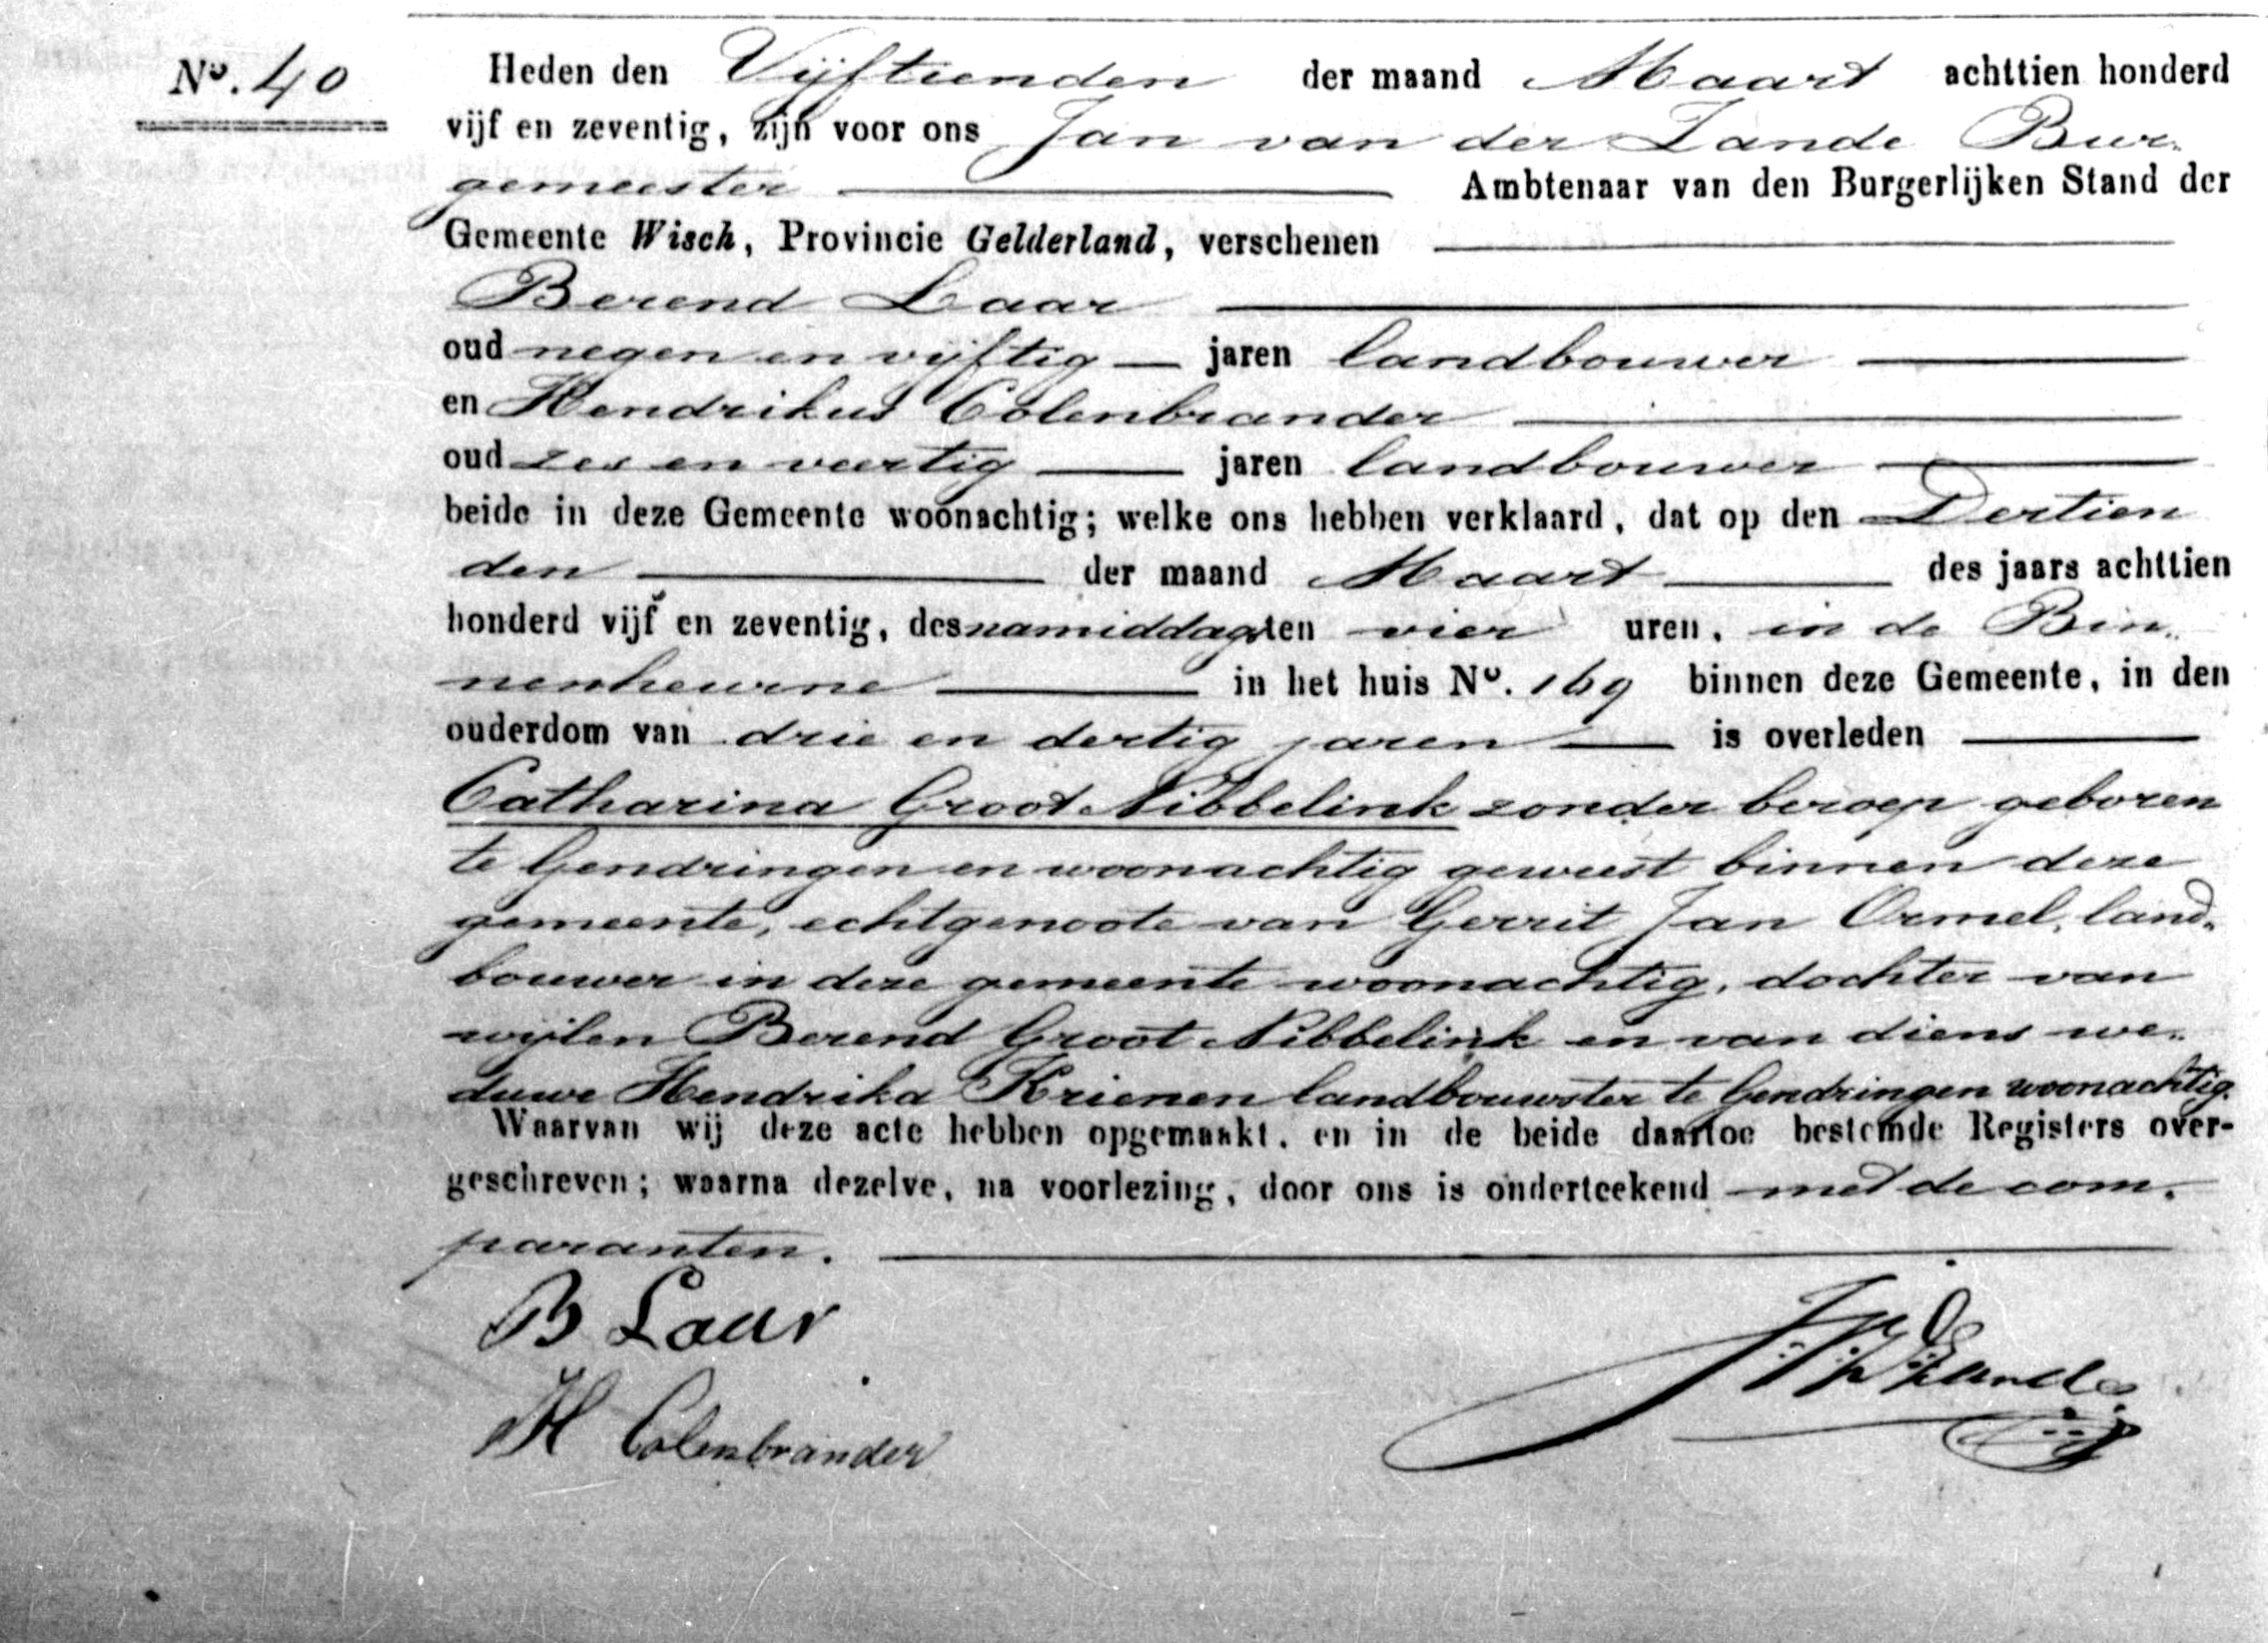 No. 40
Heden den Vijftienden der maand Maart achttien honderd
vijf en zeventig, zijn voor ons Jan van der Zande Bur-
gemeester Ambtenaar van den Burgerlijken Stand der
Gemeente Wisch, Provincie Gelderland, verschenen
Berend Laar
oud negen en vijftig jaren landbouwer
en Hendrikus Colenbrander
oud zes en veertig jaren landbouwer
beide in deze Gemeente woonachtig; welke ons hebben verklaard, dat op den Dertien
den der maand Maart des jaars achttien
honderd vijf en zeventig, des namiddags ten vier uren, in de Bin-
nenheurne in het huis No. 169 binnen deze Gemeente, in den
ouderdom van drie en dertig jaren is overleden
Catharina Groot Nibbelink zonder beroep geboren
te Gendringen en woonachtig geweest binnen deze
gemeente, echtgenoote van Gerrit Jan Ormel, land-
bouwer in deze gemeente woonachtig, dochter van
wijlen Berend Groot Nibbelink en van diens we-
duwe Hendrika Krienen landbouwster te Gendringen woonachtig.
Waarvan wij deze acte hebben opgemaakt, en in de beide daartoe bestemde Registers over-
geschreven; waarna dezelve, na voorlezing, door ons is onderteekend met de com-
paranten.
B Laar
H Colenbrander